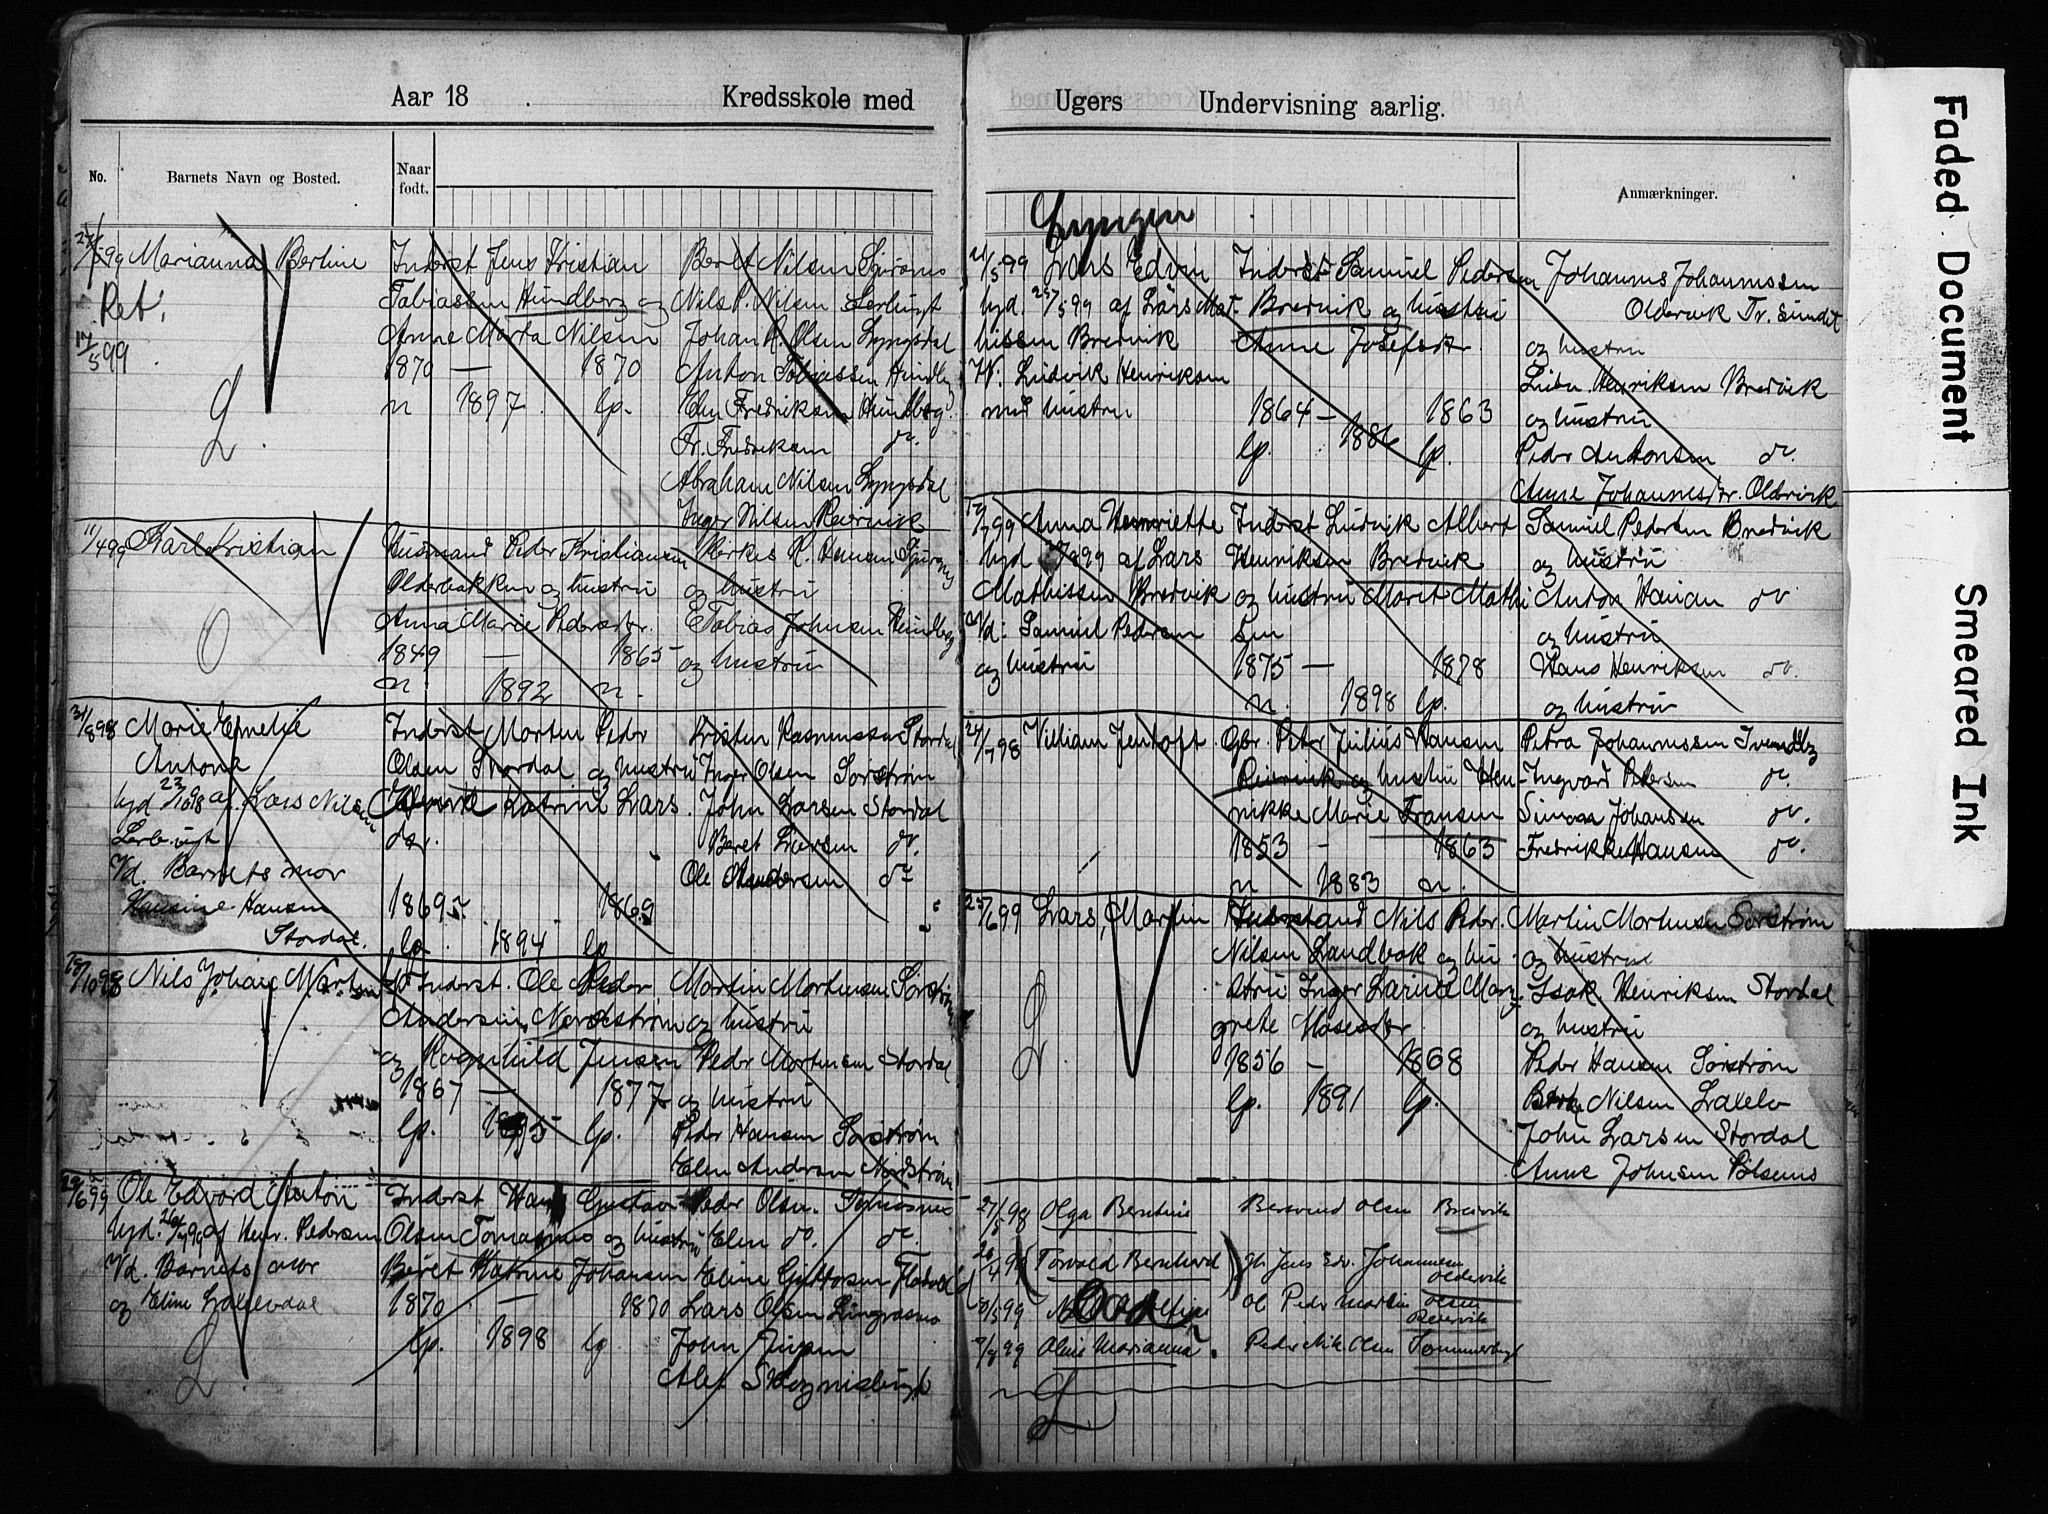 Aar 18 Kredsskole med
No. Barnets Navn og Bosted. Naar født.
27/5 99 Marianna Berline
Ret.
17/5 99
L
Inderst Jens Kristian
Tobiassen Hundberg og
Anne Marta Nilsen
1870 — 1870
n 1897 lp.
Beret Nilsen
Nils P. Nilsen
Johan R. Olsen Lyngsdal
Anton Tobiassen Hundberg
Elen Fredriksen Hundberg
Fr. Fredriksen do.
Abraham Nilsen Lyngsdal
Inger Nilsen Reiervik
11/4 99 Karl Kristian
O
Husmand Peder Kristiansen
Olderbakken og hustru
Anna Marie Pedersdtr.
1849 — 1865
n. 1892 n.
K. Hansen
og hustru
Tobias Johnsen Hundberg
og hustru
31/8 98 Marie Emelie
Antona
hjd 23/10 98 af Lars Nilsen
Vd. Barnets mor
Hansine Hansen
Stordal.
Inderst Morten Peder
Olsen Stordal og hustru
Katrine Lars
dtr.
1869 1869
lp. 1894 lp
Kristen Rasmussen Stordal
Inger Olsen Sørstrøm
John Larsen Stordal
Beret Larsen do.
Ole Andersen do
18/10 98 Nils Johan Morten
Inderst. Ole Peder
Andersen, Nordstrøm
og Ragnhild Jensen
1867 — 1877
lp. lp.
Martin Mortensen Sørstrøm
og hustru
Peder Mortensen Stordal
og hustru
Peder Hansen Sørstrøm
Elen Andersen Nordstrøm
29/6 99 Ole Edvard Anton
hjd. af Henr. Pedersen
Vd. Barnets mor
og Eline Lakselvdal
L
Inderst Hans Gustav
Olsen Tomasnes og hustru
Beret Katrine Johansen
1870 — 1870
lp. 1898 lp
Peder Olsen Tomasnes
Elen do. do.
Eline
Lars Olsen
John

Ugers Undervisning aarlig.
Anmærkninger.
Lyngen
21/5 99 Lars Edvin
hjd. 25/5 99 af Lars Mat
hissen Bredvik
V. Ludvik Henriksen
med hustru
Inderst Samuel Pedersen
Bredvik og hustru
Anne Josefsdtr.
1864 — 1863
lp. 1886 lp.
Johannes Johannessen
Oldervik Tr. sundet
og hustru
Henriksen Bredvik
og hustru
Peder Antonsen do.
Anne Johannesdtr. Oldervik
Anna Henriette
hjd 99 af Lars
Mathissen Bredvik
Vd: Samuel Pedersen
og hustru
Inderst Ludvik Albert
Henriksen Bredvik
og hustru Marit Mathi
sen
1875 — 1878
n. 1898 lp.
Samuel Pedersen Bredvik
og hustru
Anton Hansen do
og hustru
Hans Henriksen do.
og hustru
24/7 98 Villiam Jentoft
Gbr. Peter Julius Hansen
Reiervik og hustru Hen-
rikke Marie Fransen
1853 — 1863
n 1883 n.
Petra Johannessen
Ingvard Pedersen do.
Simon Johansen do.
Fredrikke Hansen do.
25/6 99 Lars, Martin
Nils Peder
Nilsen Landbak og hu
stru Inger Larine Mar
grete Mosesdtr
1856 — 1868
lp. 1891 lp.
Martin Mortensen Sørstrøm
og hustru
Isak Henriksen Stordal
og hustru
Peder Hansen Sørstrøm
Nilsen Lakselv
John Larsen Stordal
Anne Johnsen
27/5 98 Olga Berntine Bersvend Olsen Breivik
26/4 99 (Torvald Bernhard) Jens Edv. Johannesen Oldervik
99 Død Peder Martin Olsen Reiervik
99 Oline Marianna Peder Nik Olsen Sommerbugt
L

Faded Document
Smeared Ink